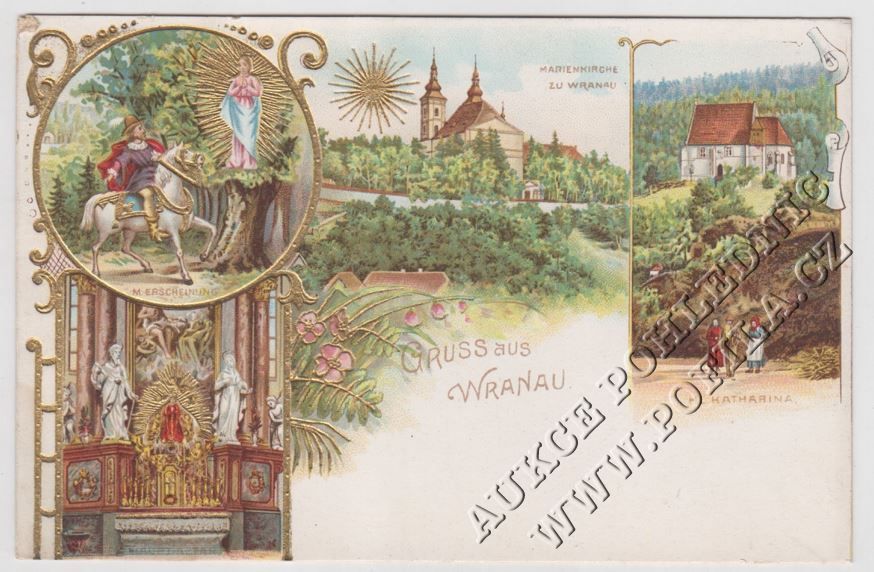 MARIENKIRCHE
ZU WRANAU
M. ERSCHEINUNG
GRUSS aus
WRANAU.
KATHARINA.
HAUPTALTAR
AUKCE POHLEDNIC
WWW.POEHLA.CZ